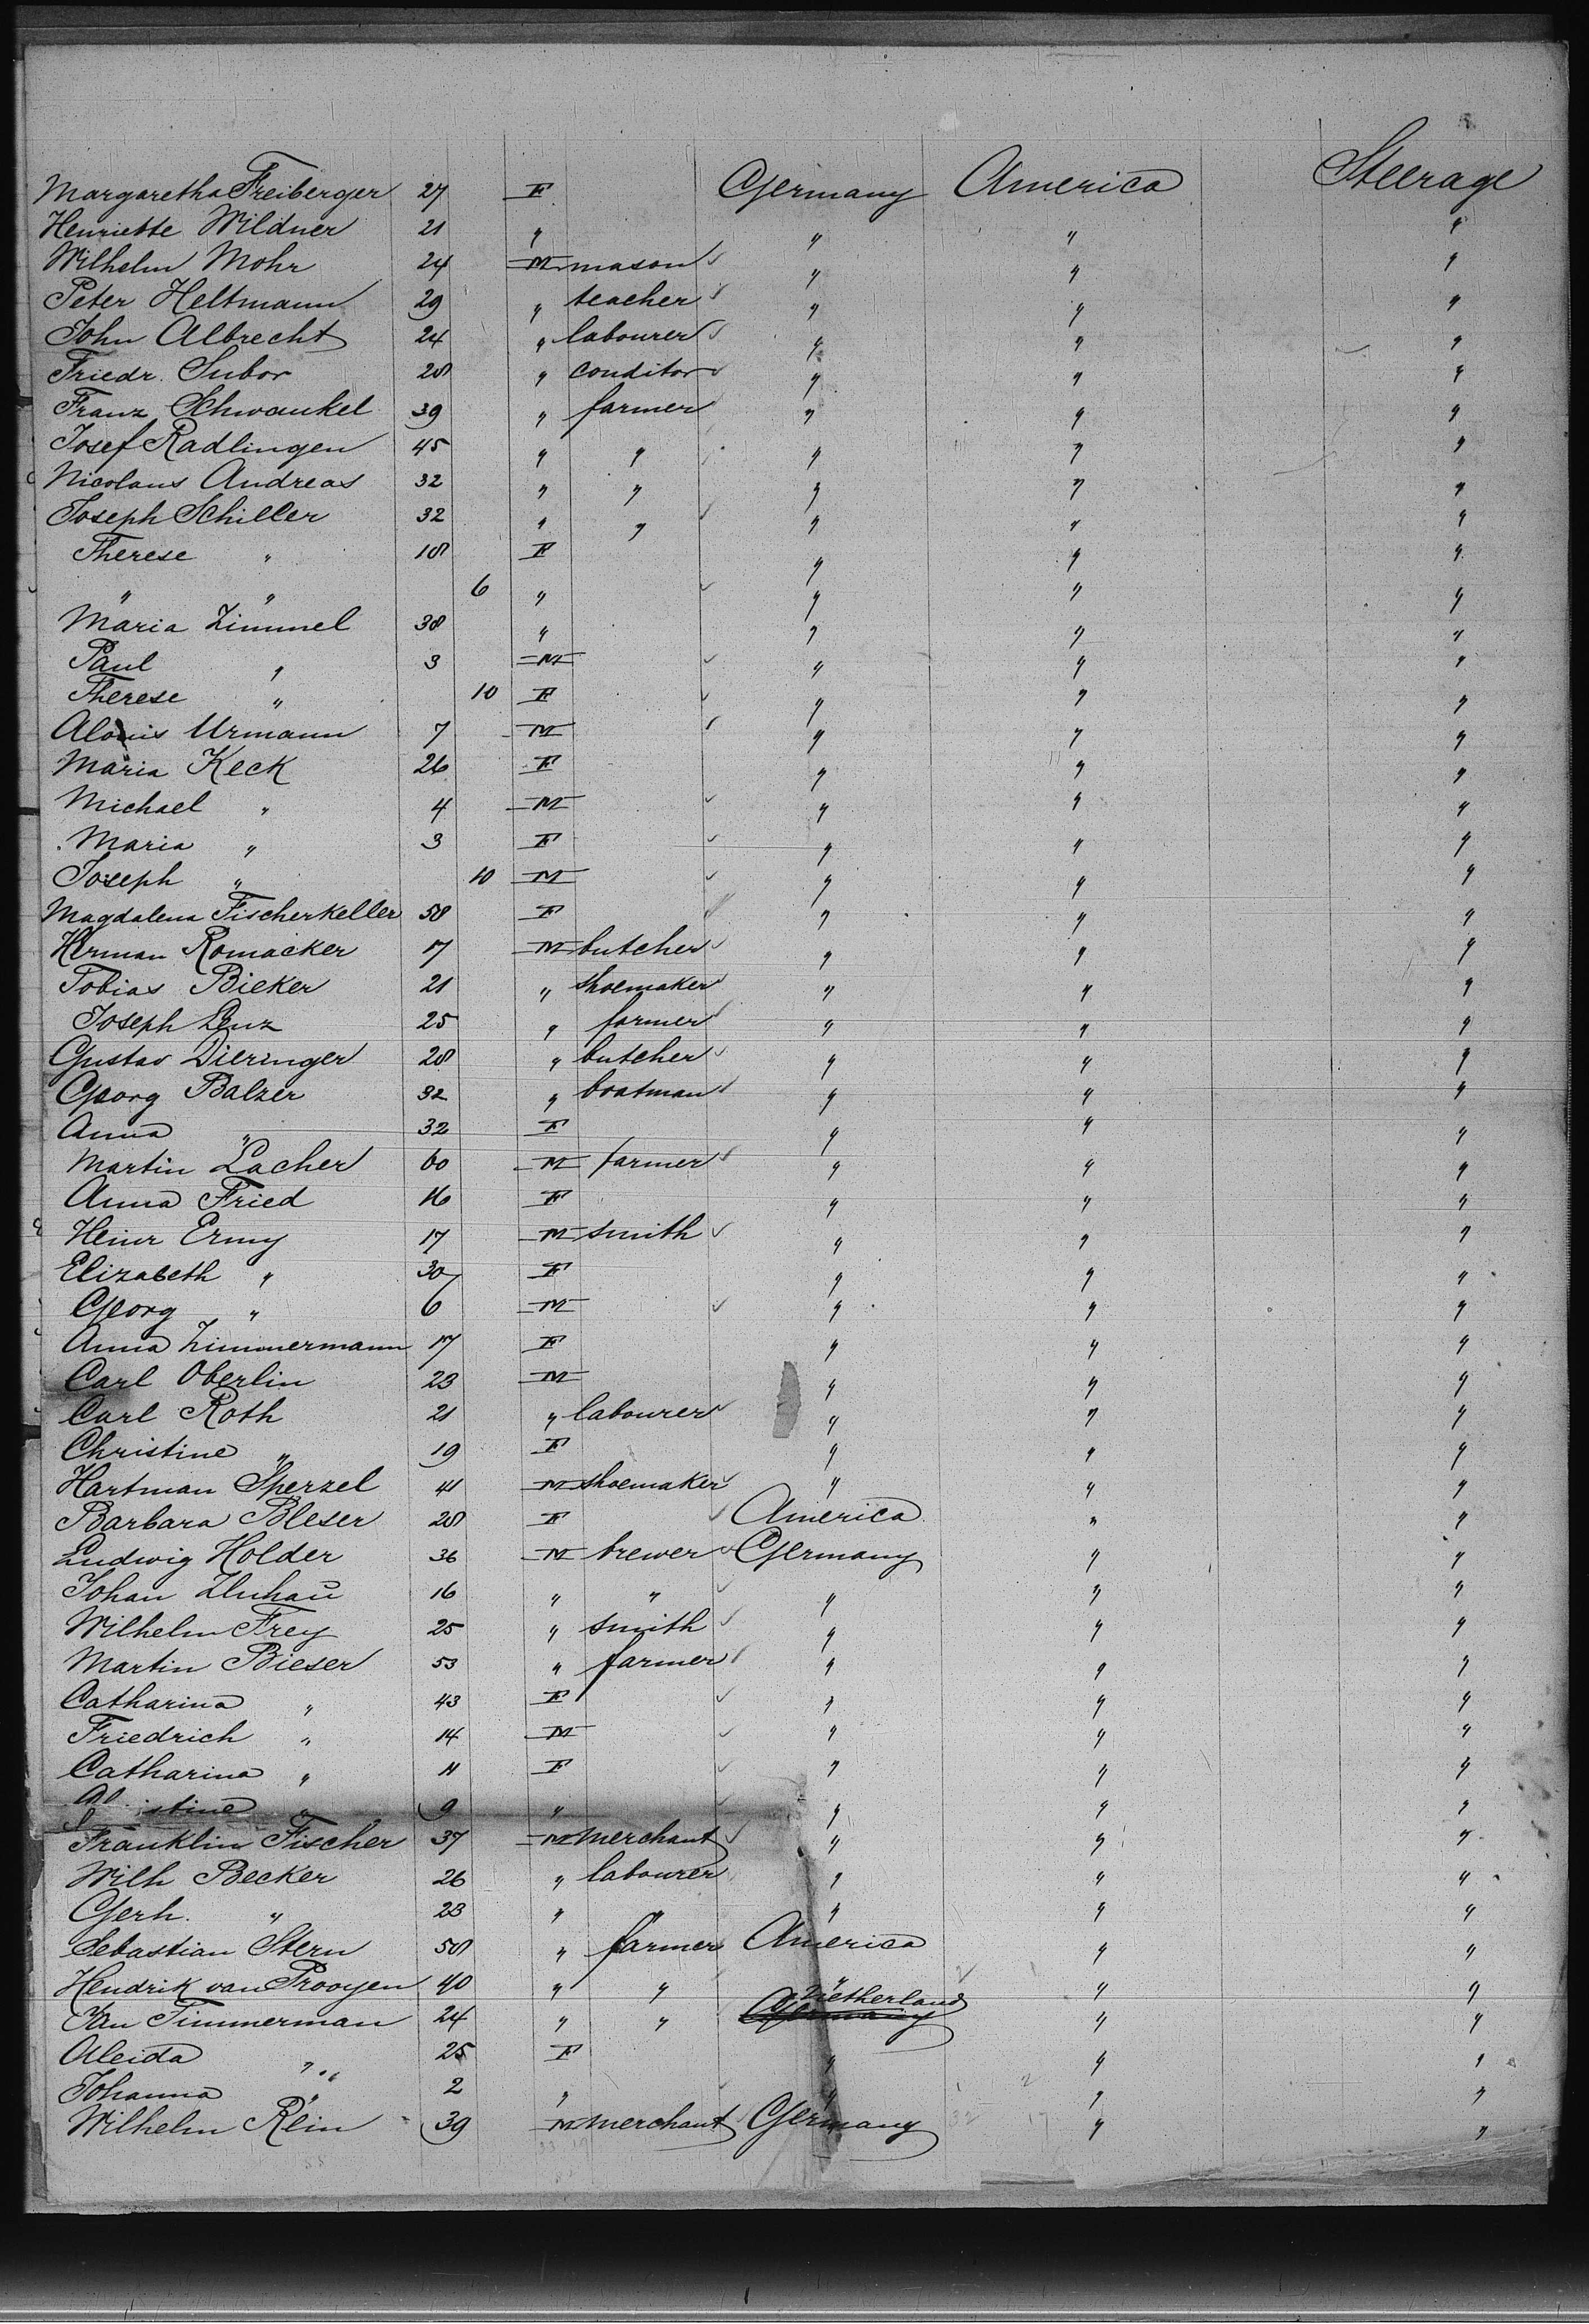 Margaretha Freiberger 27 F Germany America Steerage
Henriette Wildner 21 " " " "
Wilhelm Mohr 24 M mason " " "
Peter Heltmann 29 " teacher " " "
John Albrecht 24 " labourer " " "
Friedr. Subor 28 " conditor " " "
Franz Schwankel 39 " farmer " " "
Josef Radlingen 45 " " " " "
Nicolaus Andreas 32 " " " " "
Joseph Schiller 32 " " " " "
Therese " 18 F " " "
" " 6 " " " "
Maria Zimmel 38 " " " "
Paul " 3 M " " "
Therese " 10 F " " "
Alouis Urmann 7 M " " "
Maria Keck 26 F " " "
Michael " 4 M " " "
Maria " 3 F " " "
Joseph " 10 M " " "
Magdalena Fischerkeller 58 F " " "
Herman Romacker 17 M butcher " " "
Tobias Bieker 21 " shoemaker " " "
Joseph Lenz 25 " farmer " " "
Gustav Dieringer 28 " butcher " " "
Georg Balzer 32 " boatman " " "
Anna " 32 F " " "
Martin Lacher 60 M farmer " " "
Anna Fried 16 F " " "
Heinr Erny 17 M smith " " "
Elizabeth " 30 F " " "
Georg " 6 M " " "
Anna Zimmermann 17 F " " "
Carl Oberlin 23 M " " "
Carl Roth 21 " labourer " " "
Christine " 19 F " " "
Hartman Sperzel 41 M shoemaker " " "
Barbara Bleser 28 F America " "
Ludwig Holder 36 M brewer Germany " "
Johan 16 " " " " "
Wilhelm Frey 25 " smith " " "
Martin Bieser 53 " farmer " " "
Catharina " 43 F " " "
Friedrich " 14 M " " "
Catharina " 11 F " " "
" 9 " " " "
Franklin Fischer 37 M merchant " " "
Wilh Becker 26 " labourer " " "
Gerh. " 23 " " " " "
Sebastian Stern 58 " farmer America " "
Hendrik van Prooyen 40 " " " " "
Jan Timmerman 24 " " Germany Netherland " "
Aleida " 25 F " " "
Johanna " 2 " " " "
Wilhelm Rein 39 M merchant Germany " "